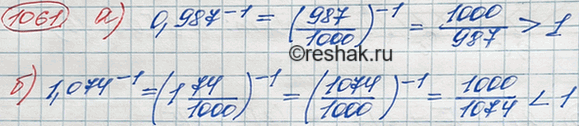 1061. а) 0,987⁻¹ = (987/1000)⁻¹ = 1000/987 > 1
©reshak.ru
б) 1,074⁻¹ = (1 74/1000)⁻¹ = (1074/1000)⁻¹ = 1000/1074 < 1